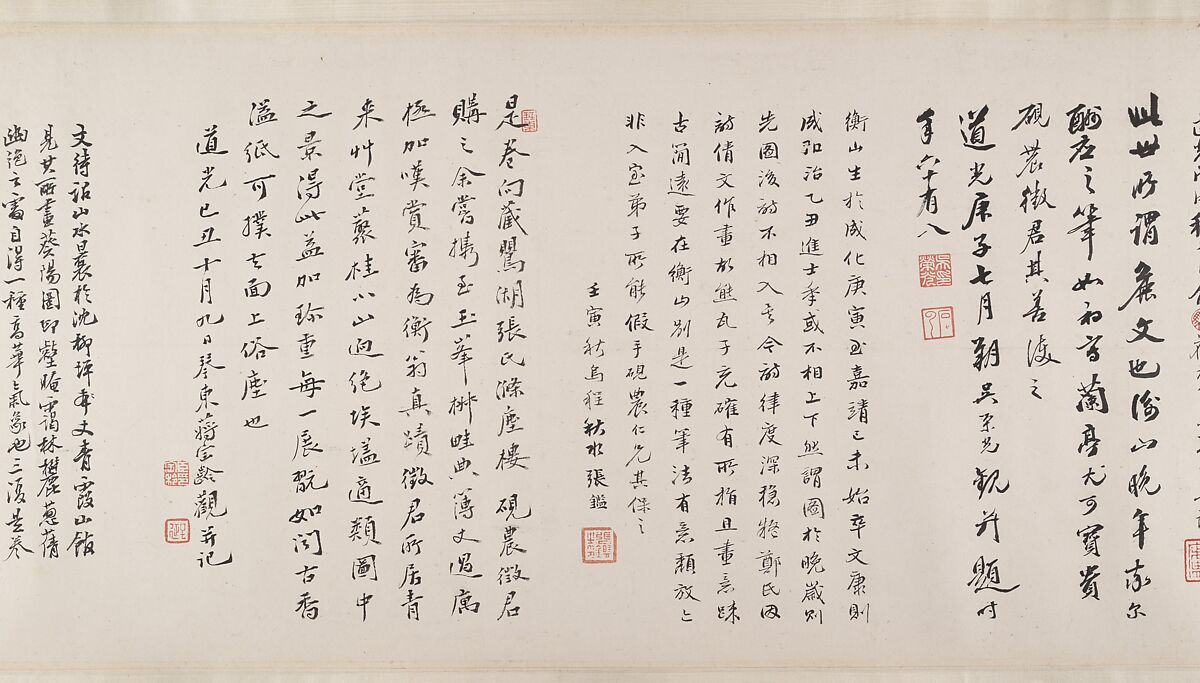 此世所謂麄文也衡山晚年亦尔
酬應之筆如初寫蘭亭尤可寶貴
硯農徵君其善護之
道光庚子七月朔吳榮光觀并題时
年六十有八
衡山生於成化庚寅至嘉靖己未始卒文康則
成弘治乙丑進士季或不相上下然謂圖於晚歲則
先圖後詩不相入玩今詩律度深穩將鄭氏因
詩倩文作畫故熊瓦子充確有所指且畫意疎
古簡遠要在衡山別是一種筆法有意頹放之
非入室弟子所能假手硯農仁兄其保之
壬寅秋烏程秋水張鑑
是卷向藏鴛湖張氏滌塵樓硯農徵君
購之余嘗攜至玉峯楙畦典簿丈過寓
極加嘆賞審為衡翁真蹟徵君所居青
来艸堂叢桂小山迥絕埃壒適類圖中
之景得此益加珍重每一展翫如聞古香
溢紙可撲去面上俗塵也
道光己丑十月九日琴東蔣寶齡觀并记
文待詔山水曩於沈柳坪大青霞山館
見其所畫葵陽圖卬壑晻靄林麓蔥蒨
幽絕之處自得一種高華氣象也三復是卷